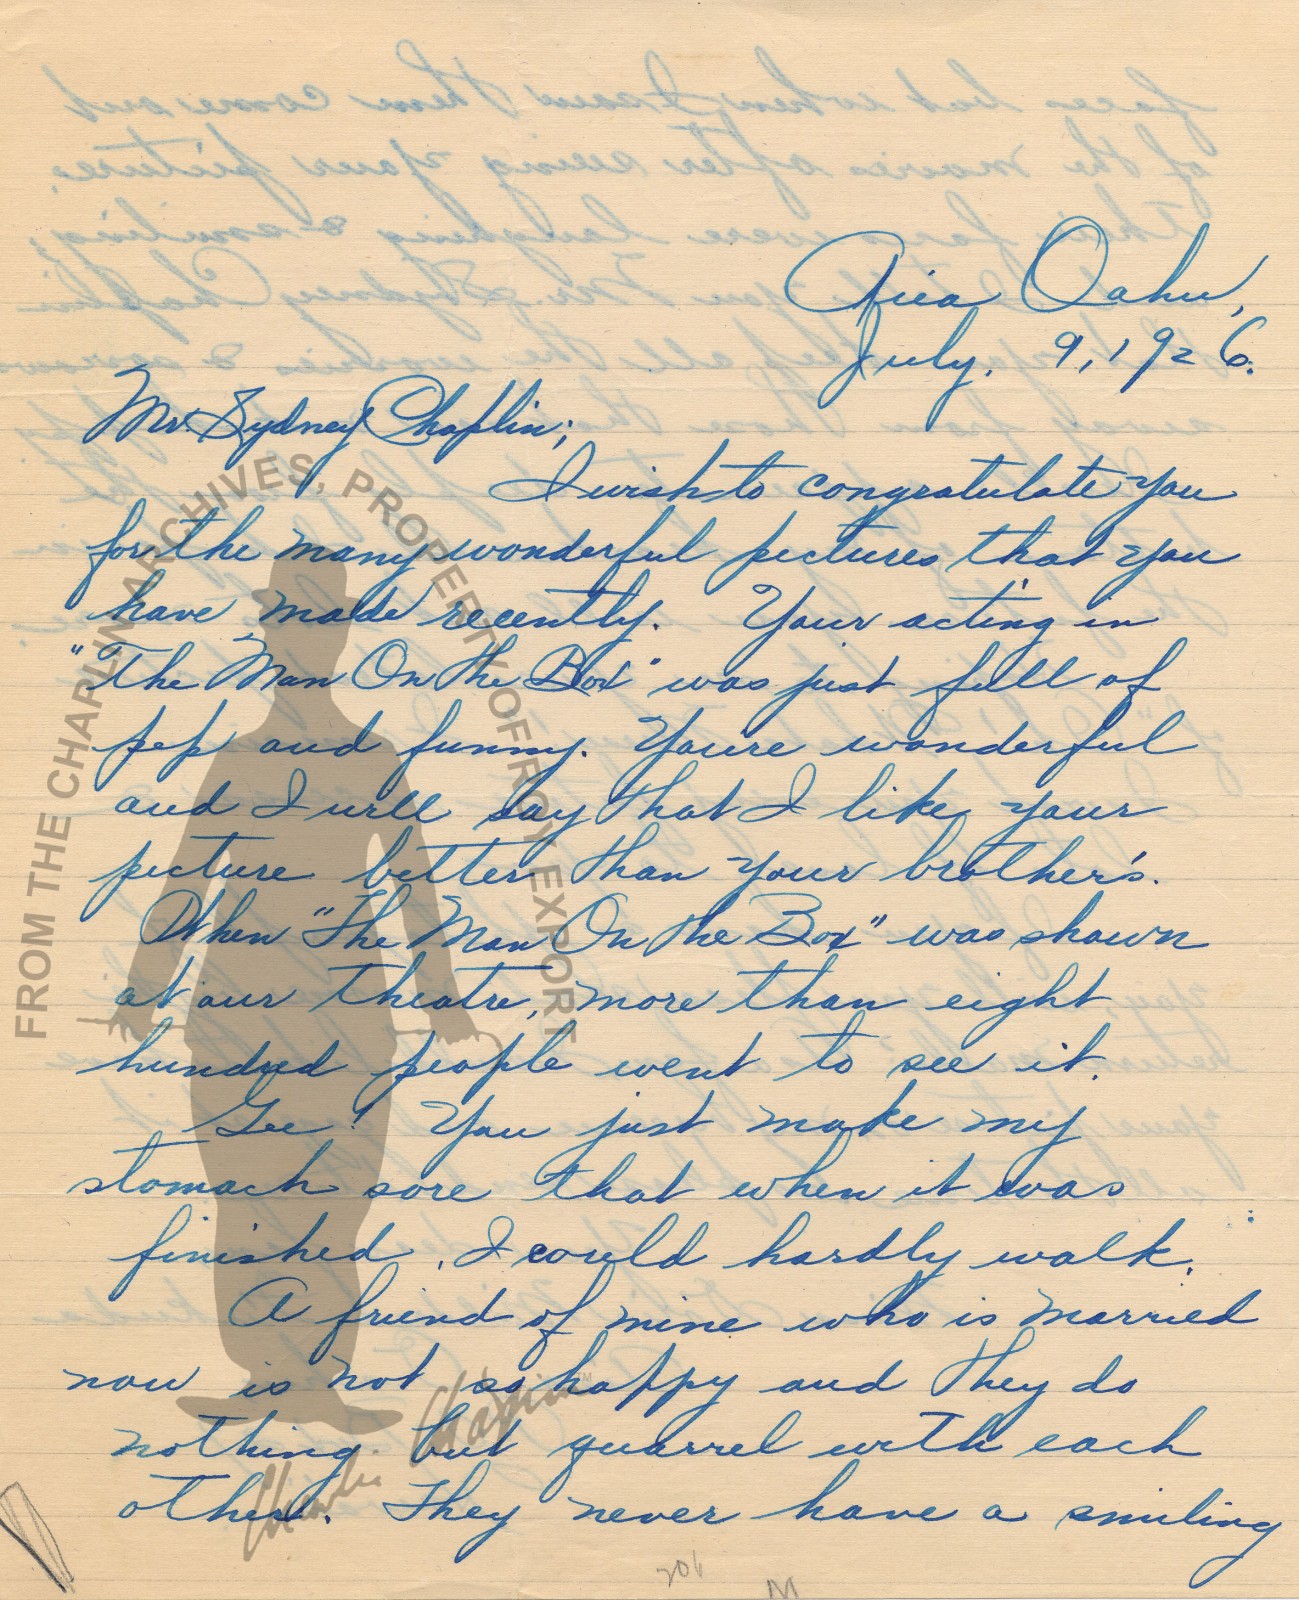 Aiea Oahu,
July. 9, 1926.
Mr. Sydney Chaplin;
I wish to congratulate you
for the many wonderful pictures that you
have made recently. Your acting in
"The Man On the Box" was just full of
pep and funny. Youre wonderful
and I will say that I like your
picture better than your brother's.
When "The Man On the Box" was shown
at our theatre, more than eight
hundred people went to see it.
Gee! You just make my
stomach sore that when it was
finished, I could hardly walk.
A friend of mine who is married
now is not so happy and they do
nothing but quarrel with each
other. They never have a smiling
FROM THE CHAPLIN ARCHIVES, PROPERTY OF ROY EXPORT
Charlie Chaplin
206
M